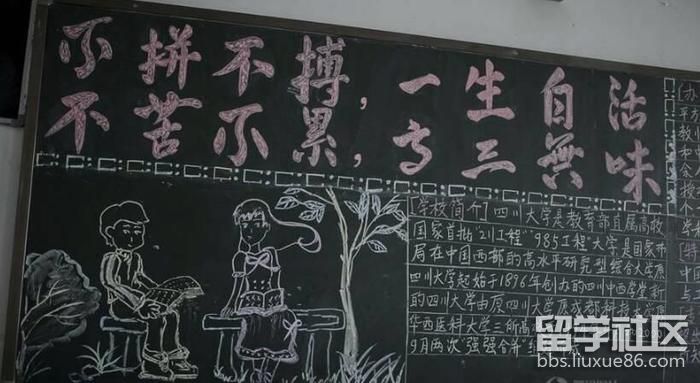 不拼不搏，一生白活
不苦不累，高三無味
[学校简介]四川大学是教育部直属高校
国家首批"211工程""985工程"大学是国家布
局在中国西部的高水平研究型综合大学原
四川大学起始于1896年创办的四川中西学堂 新
的四川大学由原四川大学 原成都科技
华西医科大学三所高
9月两次"强强合并"组
(办
平方
教
留学社区
bbs.liuxue86.com